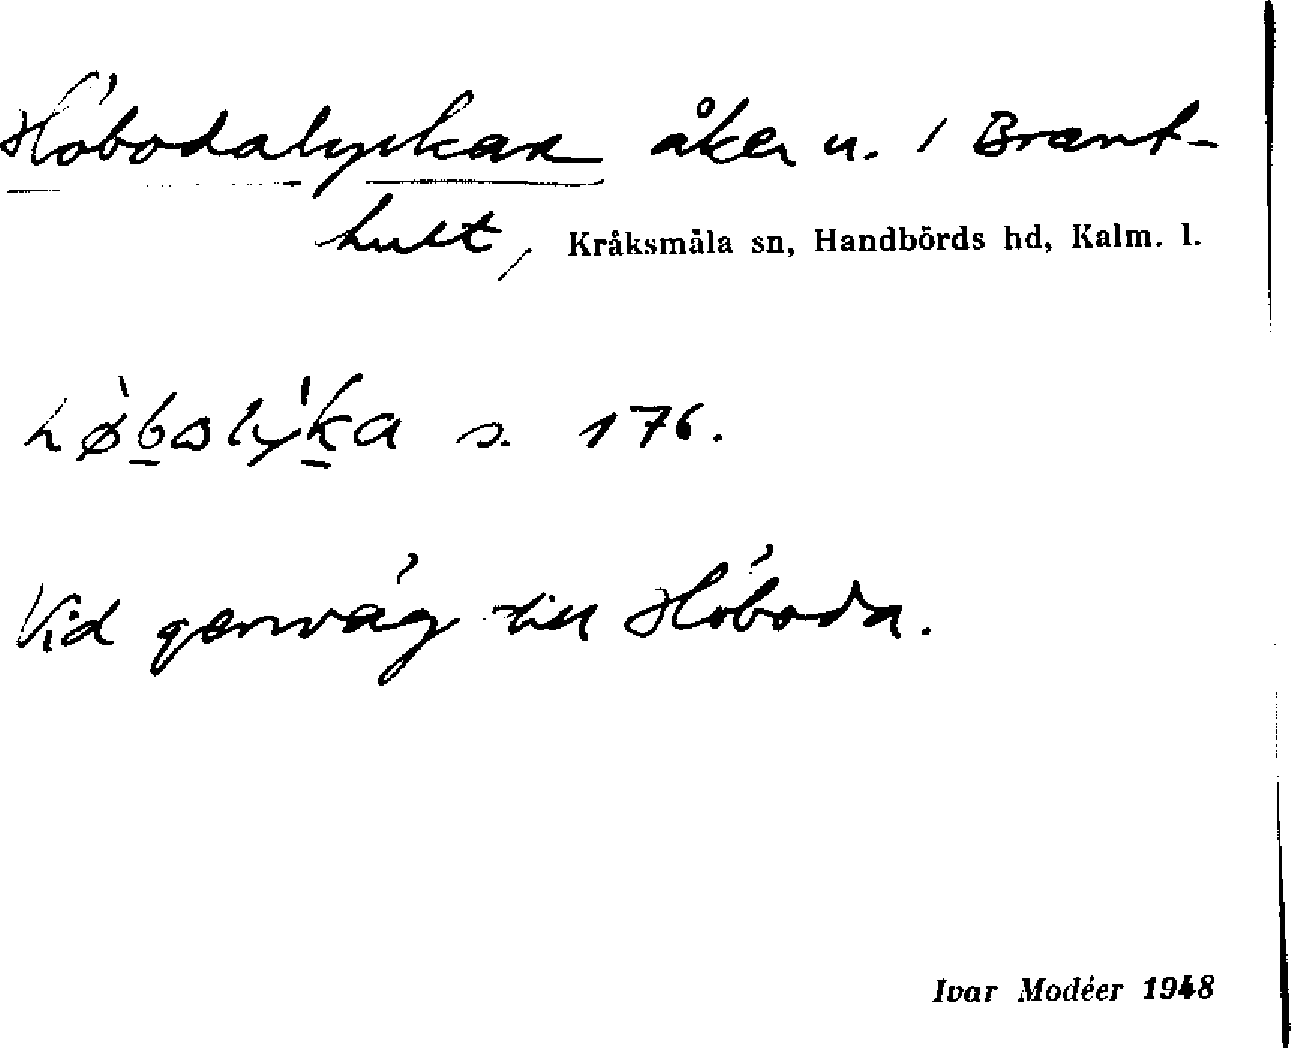 Höbodalyckan åker u. 1 Brant-
hult, Kråksmåla sn, Handbörds hd, Kalm. l.
s. 176.
Vid genväg till Höboda.
Ivar Modéer 1948